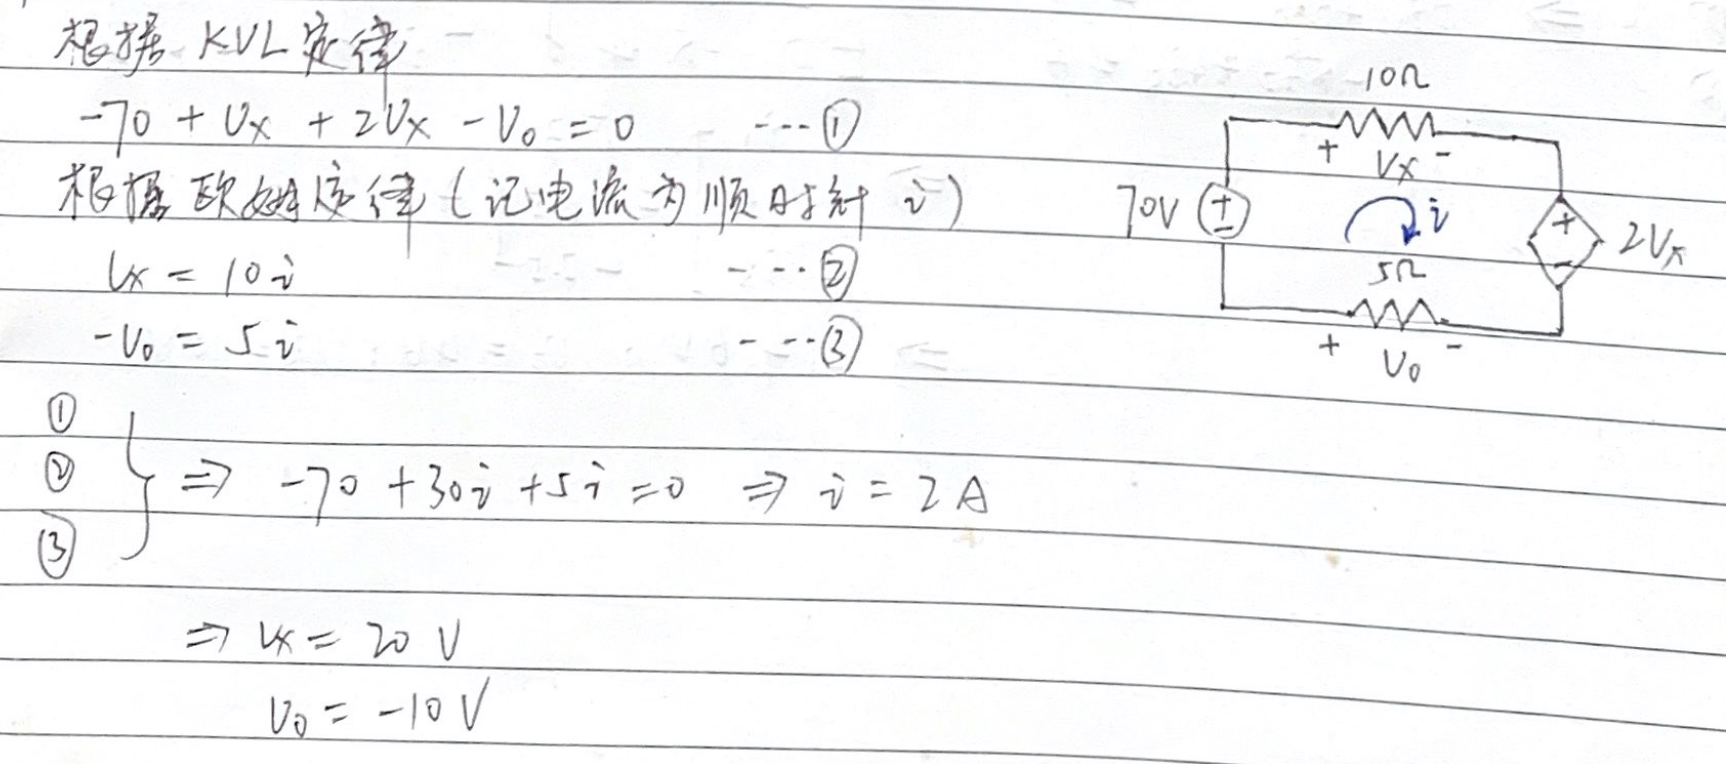 根据 KVL 定律
-70 + Vx + 2Vx - V₀ = 0 ---- ①
根据欧姆定律 (记电流为顺时针 i)
Vx = 10i ---- ②
-V₀ = 5i ---- ③
①
②
③
} ⇒ -70 + 30i + 5i = 0 ⇒ i = 2A
⇒ Vx = 20 V
V₀ = -10 V
10Ω
+ Vx -
70V + -
i
+ - 2Vx
5Ω
+ V₀ -